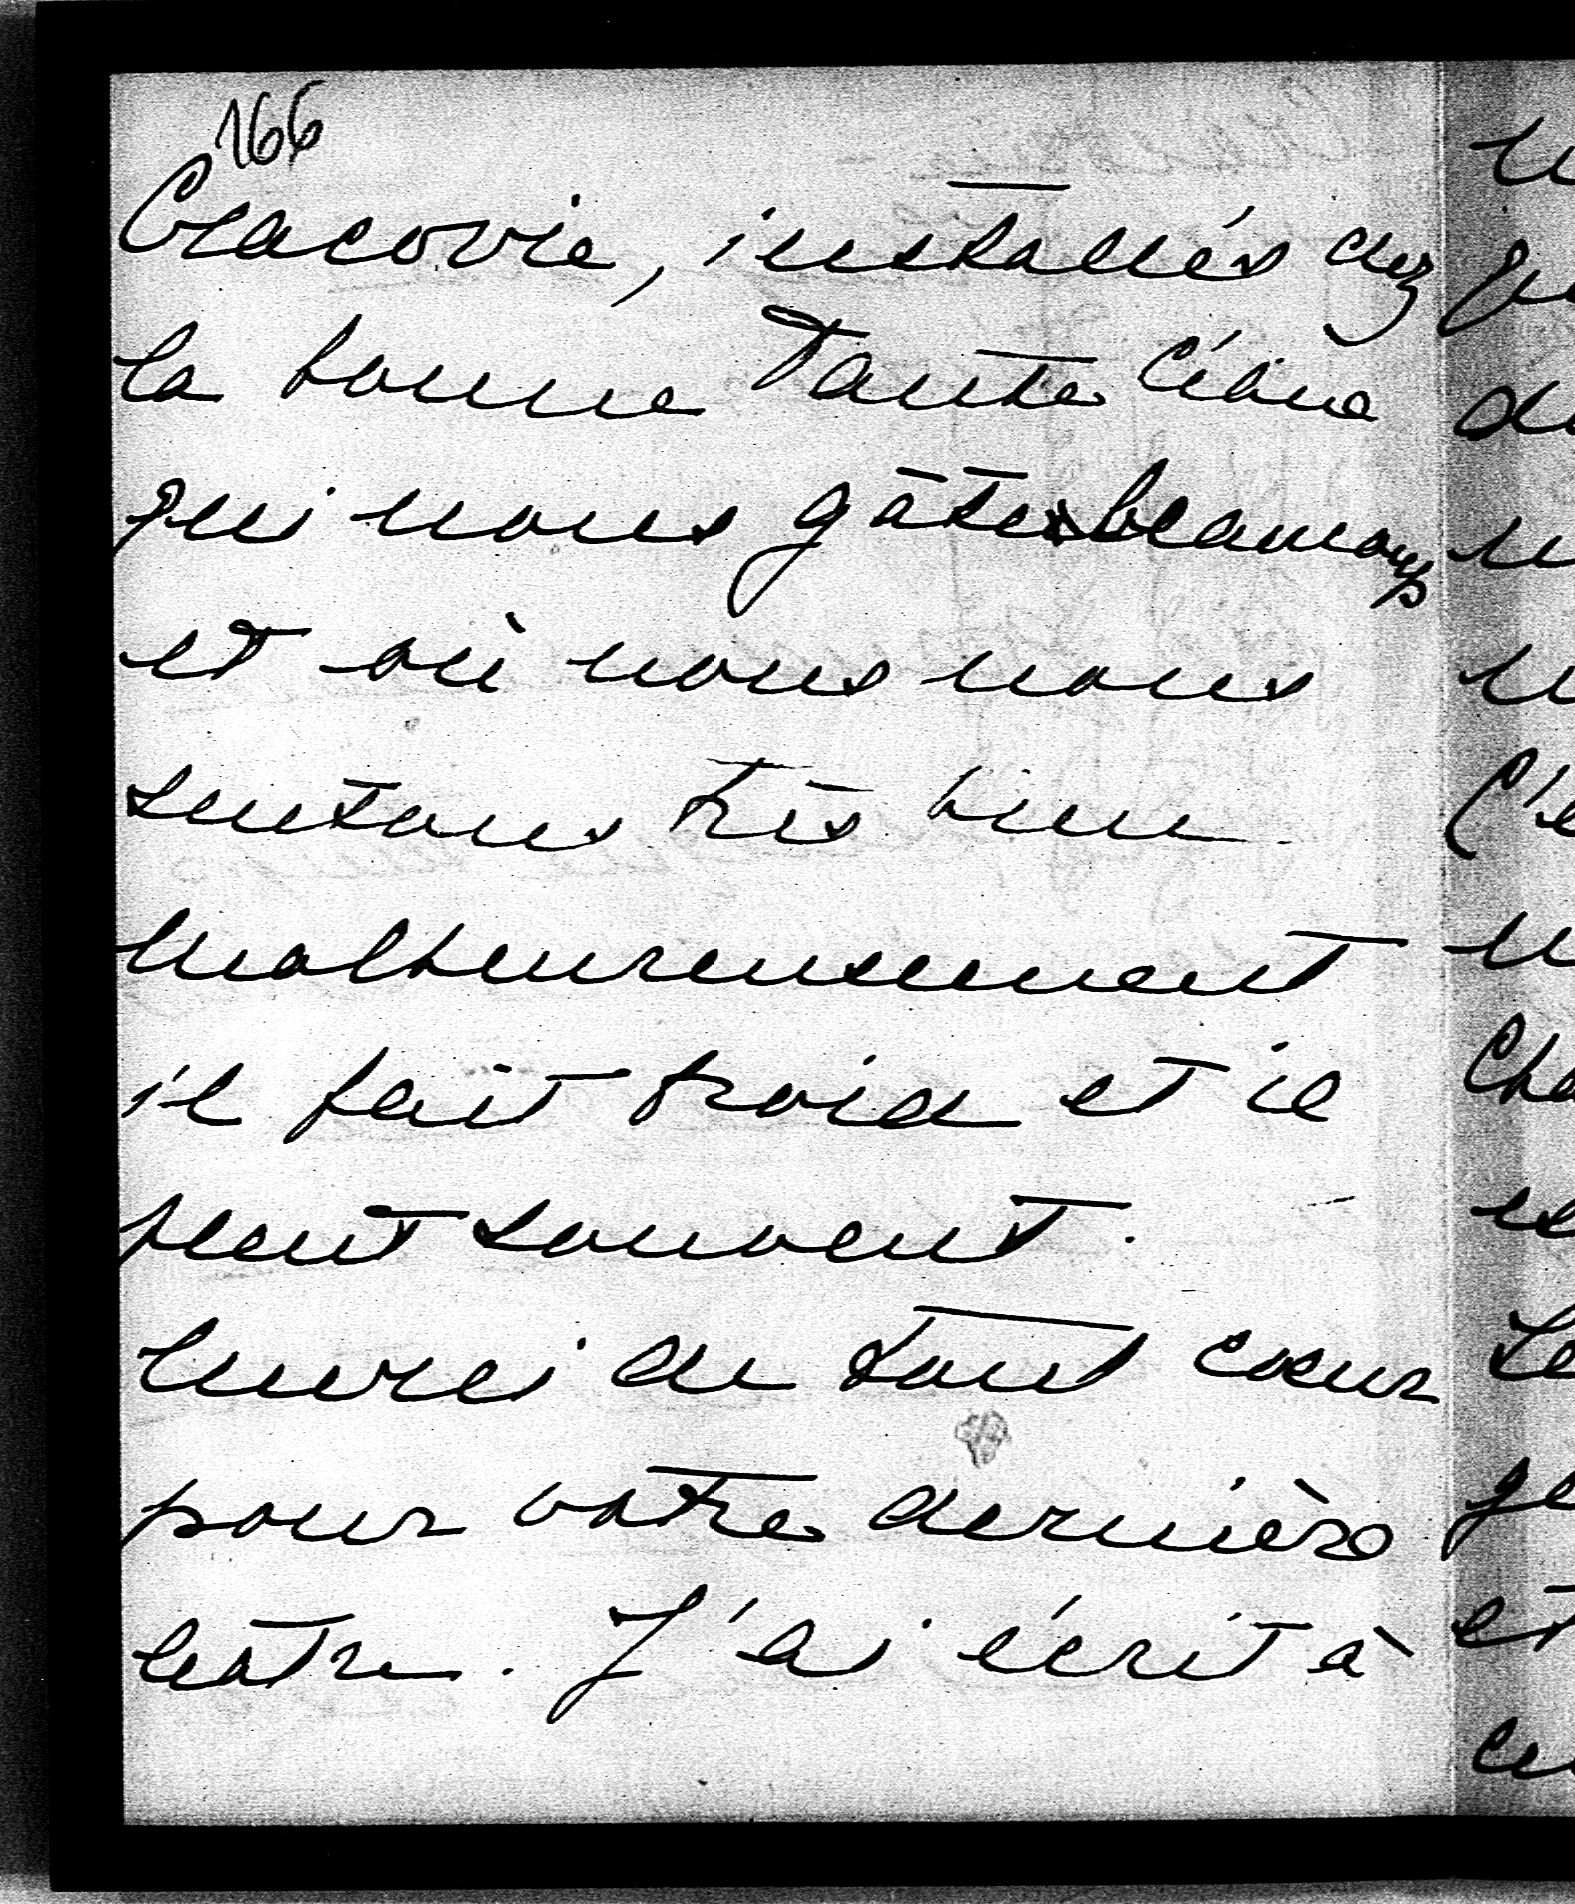 166
Cracovie, installés chez
la bonne Tante
qui nous gâte beaucoup
et où nous nous
sentons très bien
Malheureusement
il fait froid et il
pleut souvent.
Merci de tout coeur
pour votre dernière
lettre. J'ai écrit à